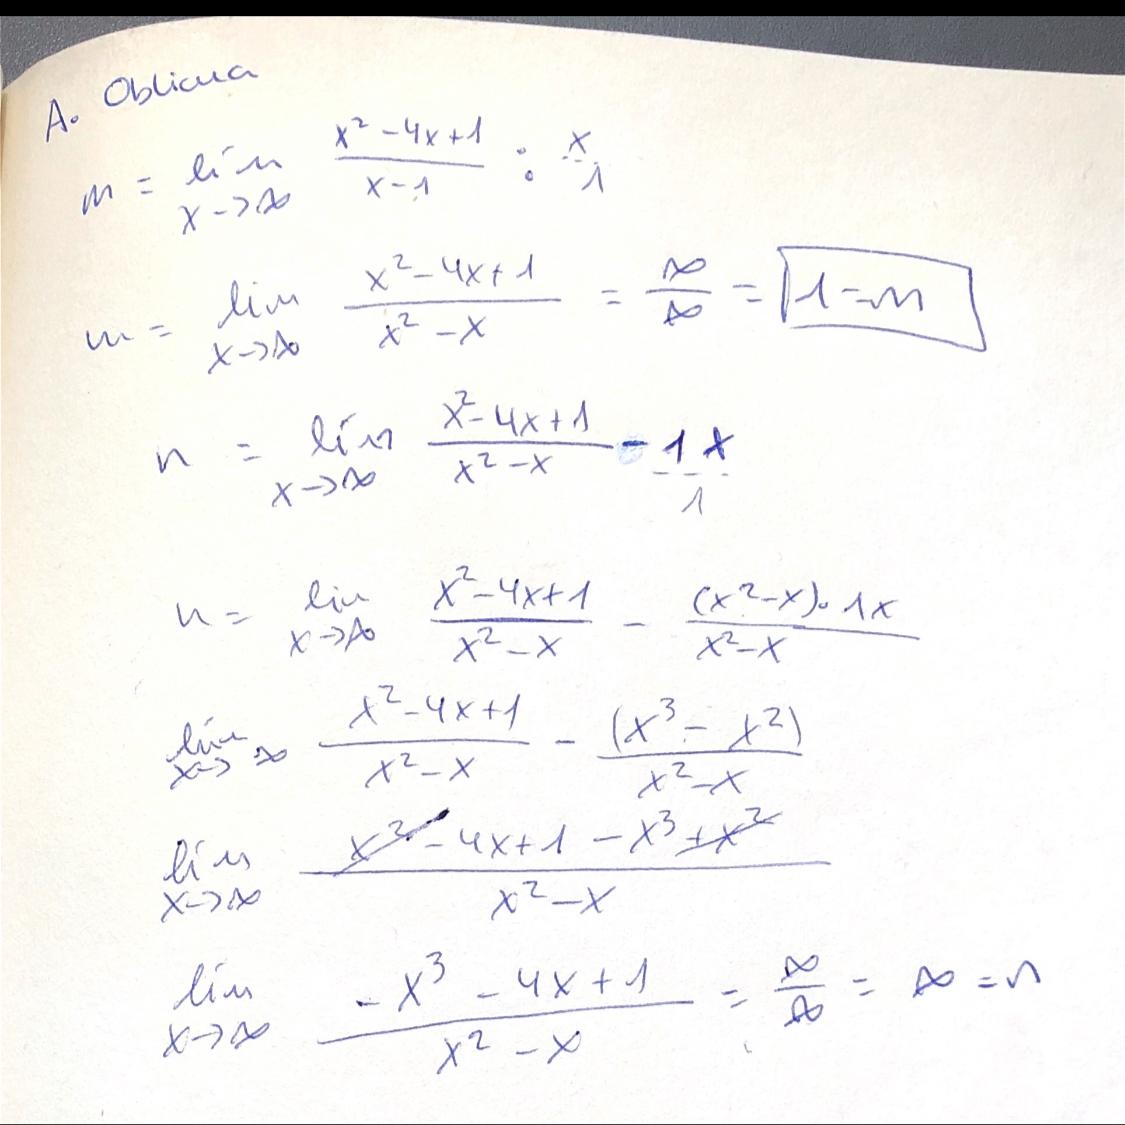 A. Oblicua
m = lím x→∞ (x² - 4x + 1)/(x - 1) : x/1
m = lim x→∞ (x² - 4x + 1)/(x² - x) = ∞/∞ = 1 = m
n = lím x→∞ (x² - 4x + 1)/(x² - x) - 1x/1
n = lim x→∞ (x² - 4x + 1)/(x² - x) - ((x² - x) · 1x)/(x² - x)
lím x→∞ (x² - 4x + 1)/(x² - x) - (x³ - x²)/(x² - x)
lím x→∞ (x² - 4x + 1 - x³ + x²)/(x² - x)
lím x→∞ (-x³ - 4x + 1)/(x² - x) = ∞/∞ = ∞ = n